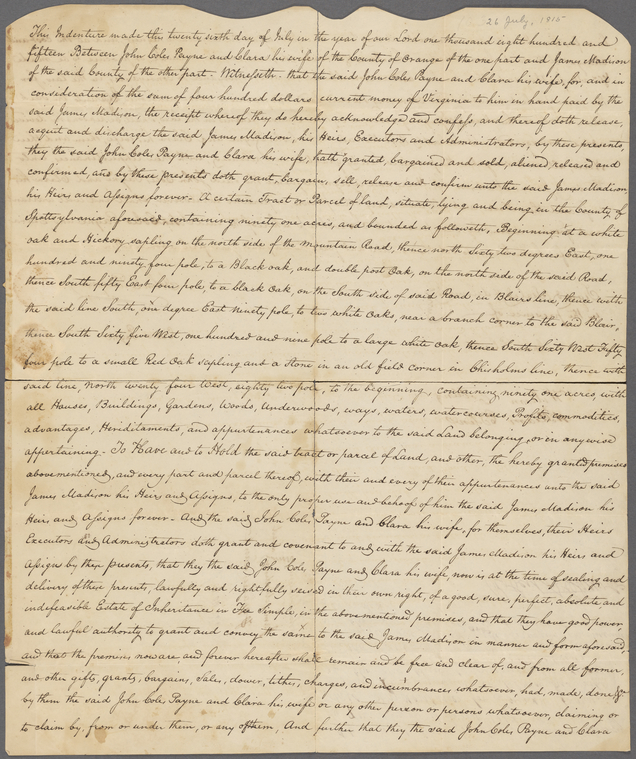 26 July, 1815
This Indenture made this twenty sixth day of July in the year of our Lord one thousand eight hundred and
fifteen Between John Coles Payne and Clara his wife of the County of Orange of the one part and James Madison
of the said County of the other part. Witnesseth: that the said John Coles Payne and Clara his wife, for, and in
consideration of the sum of four hundred dollars current money of Virginia to him in hand paid by the
said James Madison, the receipt whereof they do hereby acknowledge and confess, and thereof doth release,
acquit and discharge the said James Madison, his Heirs Executors and Administrators, by these presents,
they the said John Coles Payne and Clara his wife, hath granted, bargained and sold, aliened, released and
confirmed, and by these presents doth grant, bargain, sell, release and confirm unto the said James Madison
his Heirs and Assigns forever. A certain Tract or Parcel of land, situate, lying and being in the County of
Spottsylvania aforesaid, containing ninety one acres, and bounded as followeth, Beginning at a white
oak and Hickory sapling on the north side of the Mountain Road, thence north Sixty two degrees East, one
hundred and ninety four pole, to a Black oak, and double post Oak, on the north side of the said Road,
thence South fifty East four pole, to a black Oak, on the South side of said Road, in Blairs line, thence with
the said line South, one degree East Ninety pole, to two white Oaks, near a branch corner to the said Blair,
thence South Sixty five West, one hundred and nine pole to a large white oak, thence South Sixty West Fifty
four pole to a small Red Oak sapling and a Stone in an old field corner in Chisholms line, thence with
said line, North twenty four West, eighty two pole, to the beginning, containing ninety one acres, with
all Houses, Buildings, Gardens, Woods, Underwoods, ways, waters, watercourses, Profits, commodities,
advantages, Heriditaments, and appurtenances whatsoever to the said Land belonging, or in any wise
appertaining. To Have and to Hold the said tract or parcel of Land, and other, the hereby granted premises
abovementioned, and every part and parcel thereof, with their and every of their appurtenances unto the said
James Madison his Heirs and Assigns, to the only proper use and behoof of him the said James Madison his
Heirs and Assigns forever. And the said John Coles Payne and Clara his wife, for themselves, their Heirs
Executors and Administrators doth grant and covenant to and with the said James Madison his Heirs and
Assigns by these presents, that they the said John Coles Payne and Clara his wife, now is at the time of sealing and
delivery of these presents, lawfully and rightfully seised in their own right, of a good, sure, perfect, absolute and
indefeasible Estate of Inheritance in Fee Simple, in the abovementioned premises, and that they have good power
and lawful authority to grant and convey the same to the said James Madison in manner and form aforesaid,
and that the premises now are and forever hereafter shall remain and be free and clear of, and from all former,
and other gifts, grants, bargains, sales, dower, titles, charges, and incumbrances whatsoever, had, made, done &c
by them the said John Coles Payne and Clara his wife or any other person or persons whatsoever, claiming or
to claim by, from or under them, or any of them, And further that they the said John Coles Payne and Clara